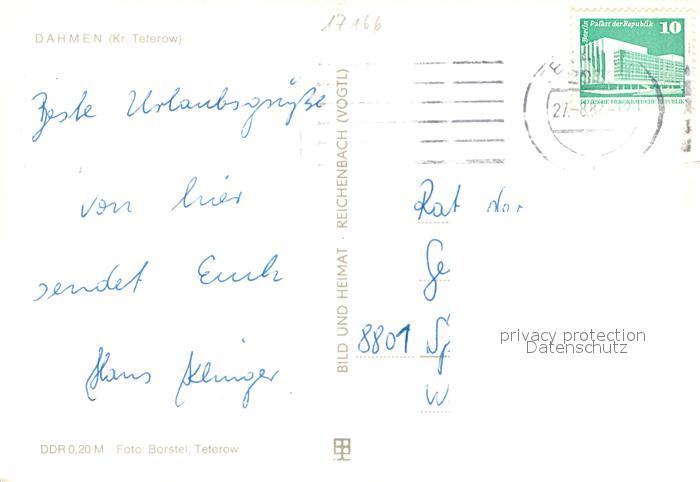 17166
DAHMEN (Kr. Teterow)
Beste Urlaubsgrüße
von hier
sendet Euch
Hans Klinger
DDR 0,20 M Foto: Borstel, Teterow
BILD UND HEIMAT · REICHENBACH (VOGTL)
Berlin Palast der Republik
10
DEUTSCHE DEMOKRATISCHE REPUBLIK
Rat der
Ge
8801 Sp
W
privacy protection
Datenschutz